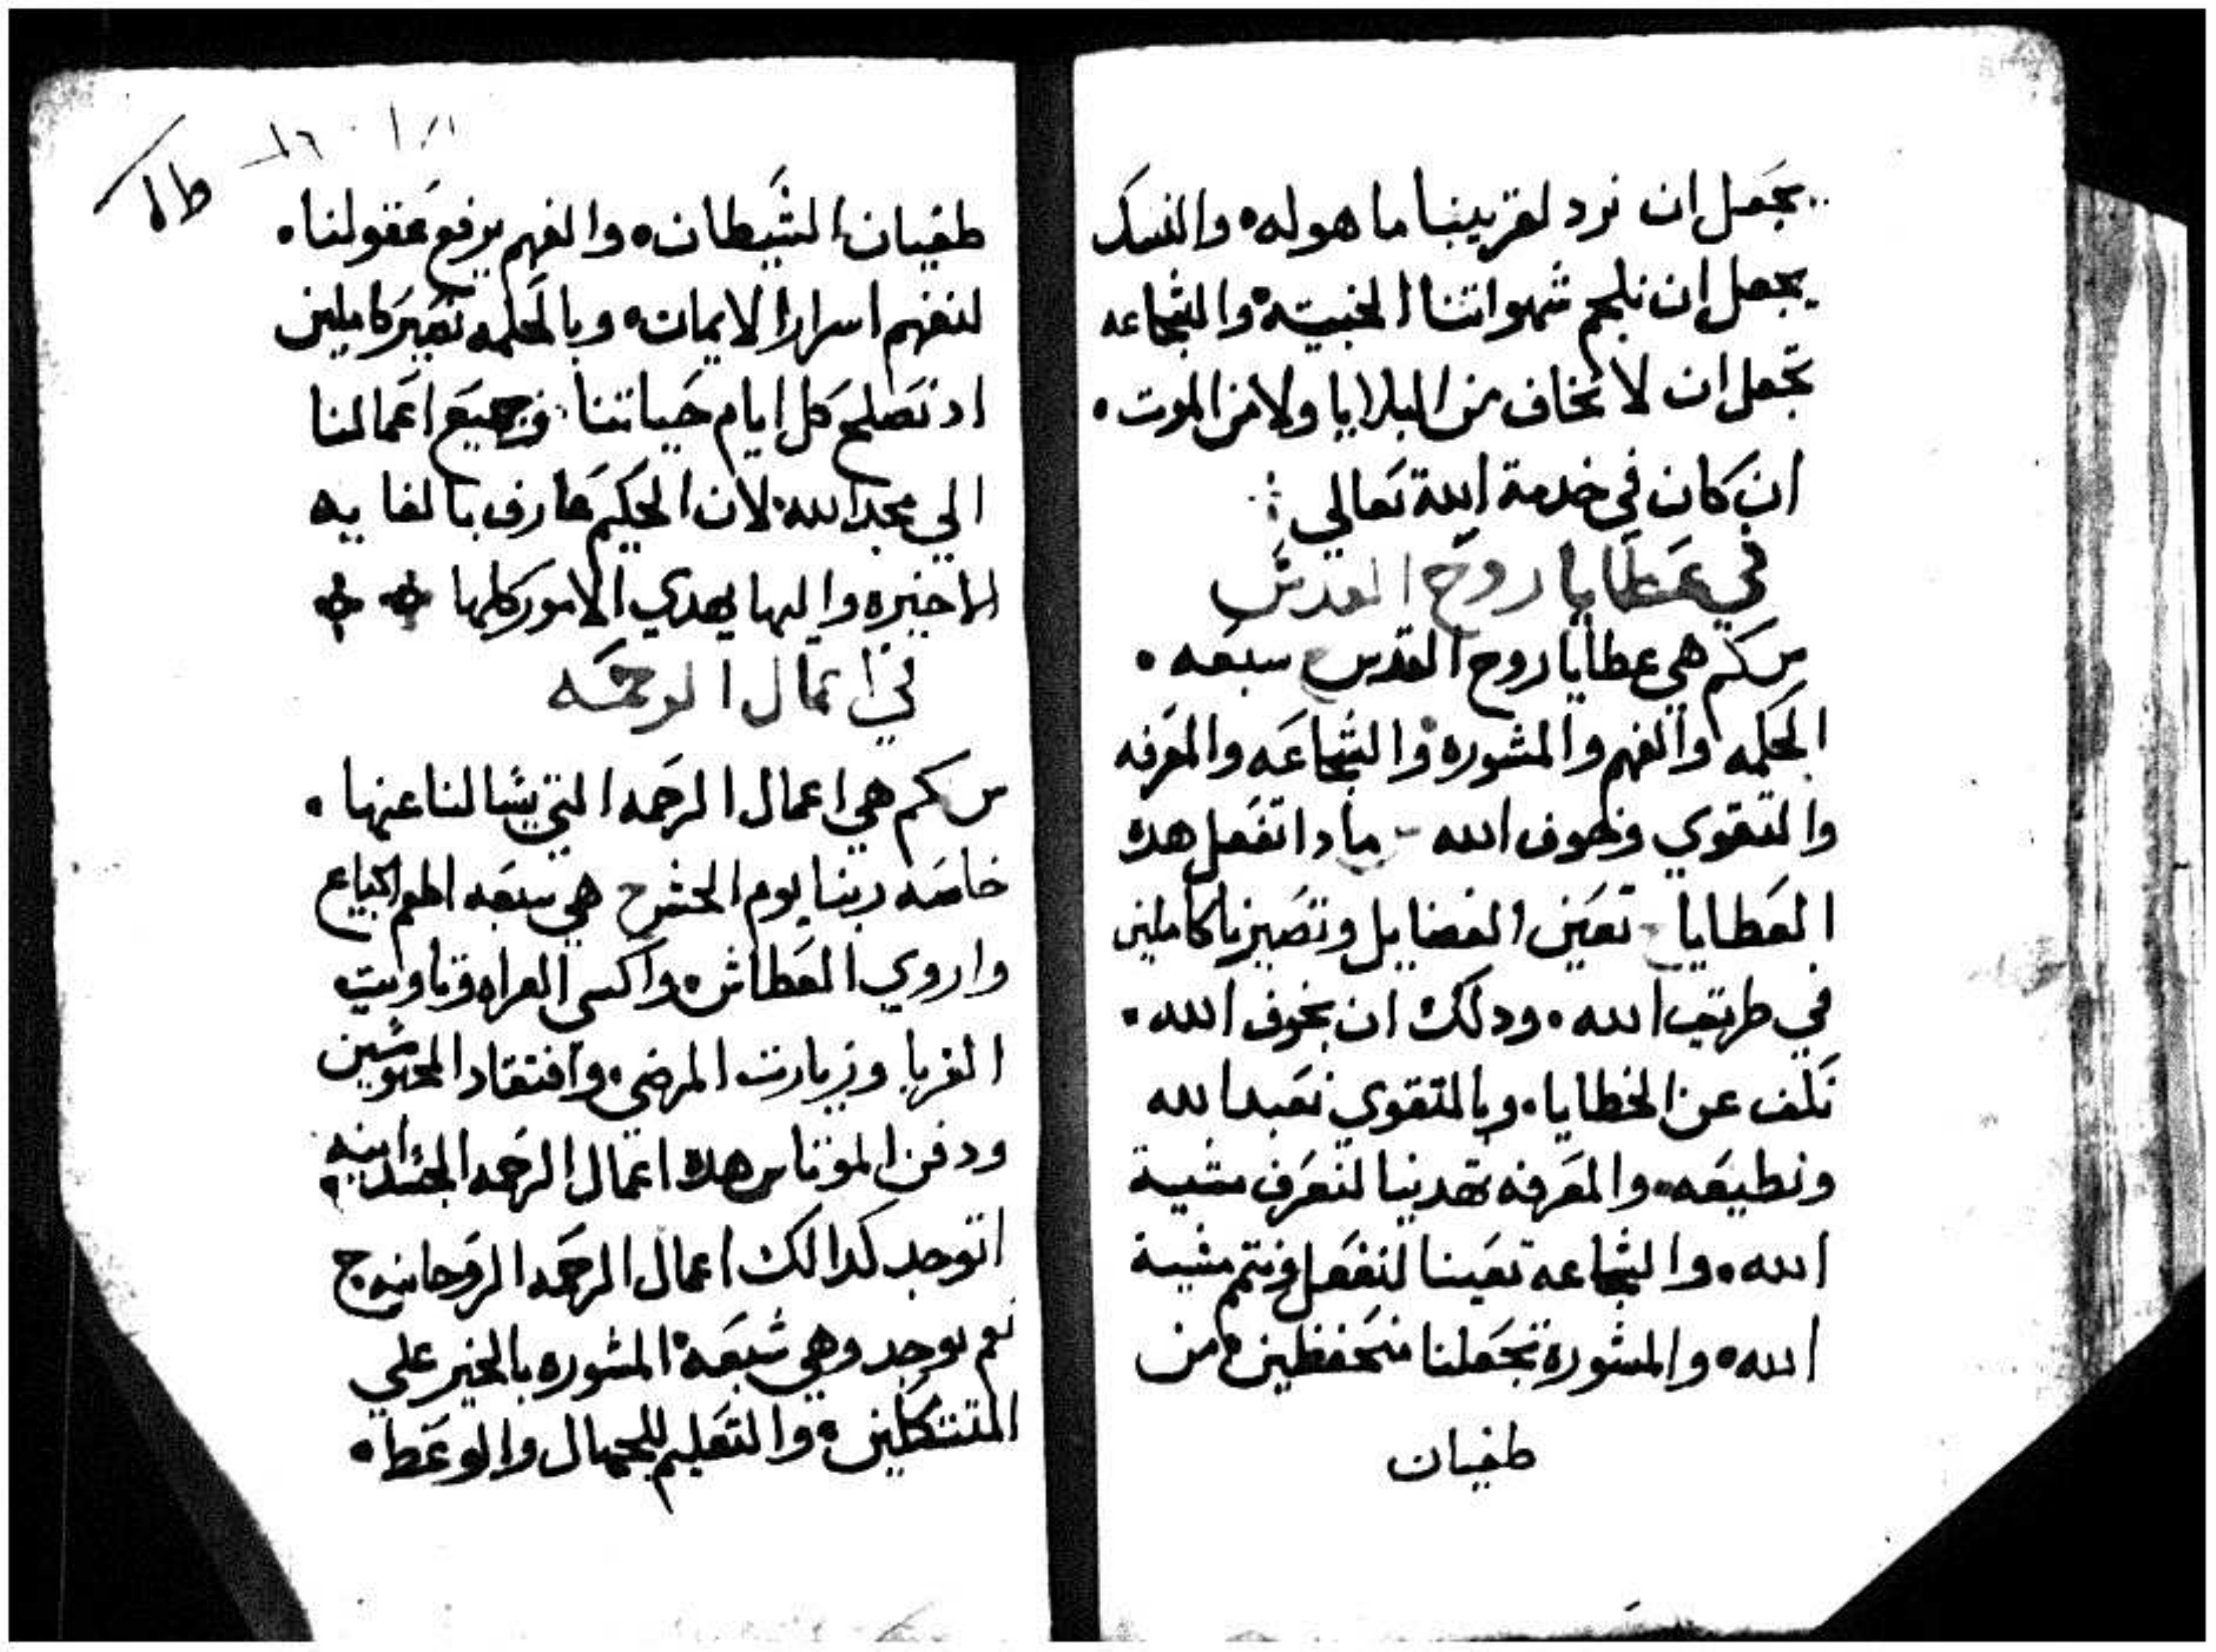 يجعل ان نرد لقريبنا ما هو له والنسك
يجعل ان نلجم شهواتنا الخبيته والشجاعه
تجعل ان لا نخاف من البلايا ولا من الموت
ان كان في خدمة الله تعالي
في عطايا روح القدس
س كم هي عطايا روح القدس سبعه
الحكمه والفهم والمشوره والشجاعه والمعرفه
والتقوي وخوف الله مادا تفعل هده
العطايا تعين الفضايل وتصيرنا كاملين
في طريق الله ودلك ان بخوف الله
نكف عن الخطايا وبالتقوي نعبد الله
ونطيعه والمعرفه تهدينا لنعرف مشية
الله والشجاعه تعيننا لنفعل ونتم مشية
الله والمشورة تجعلنا متحفظين من
طغيان
طغيان الشيطان والفهم يرفع عقولنا
لنفهم اسرار الايمان وبالحكمه نصير كاملين
اد نصلح كل ايام حياتنا وجميع اعمالنا
الي مجد الله لان الحكيم عارف بالغايه
الاخيره واليها يهدي الامور كلها
في اعمال الرحمه
س كم هي اعمال الرحمه التي يسالنا عنها
خاصه ربنا يوم الحشر ج هي سبعه اطعم الجياع
واروي العطاش واكسي العراه وتاويت
الغربا وزيارت المرضي وافتقاد المحبوسين
ودفن الموتا س هده اعمال الرحمه الجسدانيه
اتوجد كدالك اعمال الرحمه الروحانيه ج
نعم يوجد وهي سبعه المشوره بالخير علي
المتشككين والتعليم للجهال والوعظ